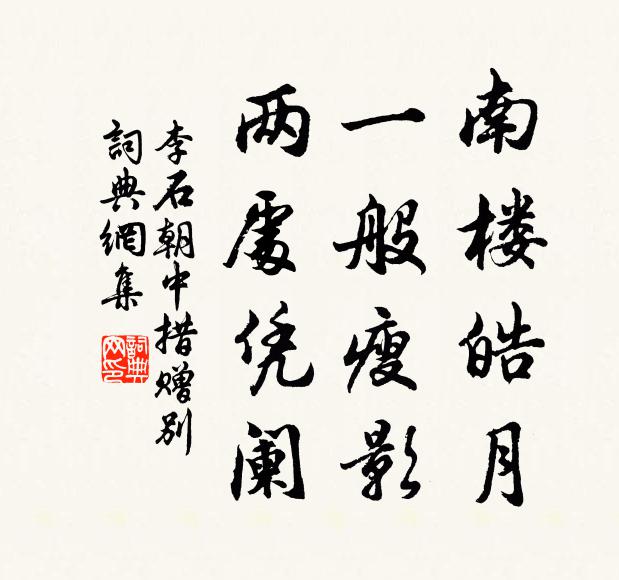 南楼皓月
一般瘦影
两處凭阑
李石朝中措赠别
詞典網集
詞典網印